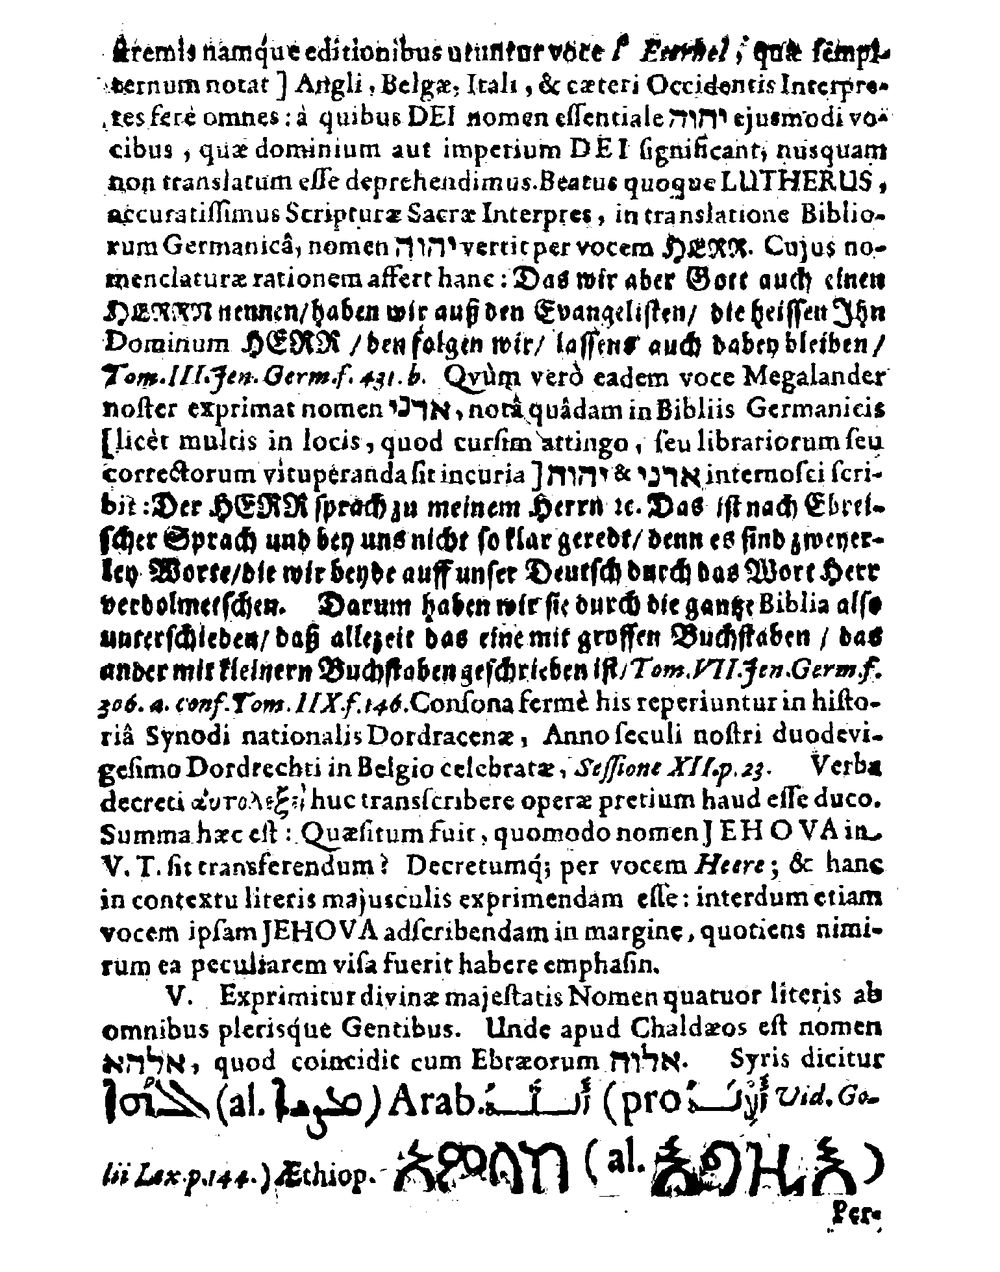 Aremis namq́ue editionibus utuntur voce l' Eternel, quæ sempi-
ternum notat ] Angli, Belgæ, Itali, & cæteri Occidentis Interpre-
tes ferè omnes: à quibus DEI nomen eſſentiale יהוה ejusmodi vo-
cibus, quæ dominium aut imperium DEI ſignificant, nusquam
non translatum eſſe deprehendimus. Beatus quoque LUTHERUS,
accuratiſſimus Scripturæ Sacræ Interpres, in translatione Biblio-
rum Germanicâ, nomen יהוה vertit per vocem HERR. Cujus no-
menclaturæ rationem affert hanc: Das wir aber Gott auch einen
HERRN nennen/ haben wir auß den Evangeliſten/ die heiſſen Ihn
Dominum HERR / den folgen wir/ laſſens auch dabey bleiben /
Tom. III. Jen. Germ. f. 431. b. Qvùm verò eadem voce Megalander
noſter exprimat nomen אדני, notâ quâdam in Bibliis Germanicis
[licèt multis in locis, quod curſim attingo, ſeu librariorum ſeu
correctorum vituperanda ſit incuria ] יהוה & אדני internoſci ſcri-
bit: Der HERR ſprach zu meinem Herrn ꝛc. Das iſt nach Ebrei-
ſcher Sprach und bey uns nicht ſo klar geredt/ denn es ſind zweyer-
ley Worte/ die wir beyde auff unſer Deutſch durch das Wort Herr
verdolmetſchen. Darum haben wir ſie durch die gantze Biblia alſo
unterſchieden/ daß allezeit das eine mit groſſen Buchſtaben / das
ander mit kleinern Buchſtaben geſchrieben iſt/ Tom. VII. Jen. Germ. f.
306. a. conf. Tom. IIX. f. 146. Conſona fermè his reperiuntur in hiſto-
riâ Synodi nationalis Dordracenæ, Anno ſeculi noſtri duodevi-
geſimo Dordrechti in Belgio celebratæ, Seſſione XII. p. 23. Verba
decreti αὐτολεξεὶ huc transſcribere operæ pretium haud eſſe duco.
Summa hæc eſt: Quæſitum fuit, quomodo nomen JEHOVA in
V. T. ſit transferendum? Decretumq́; per vocem Heere; & hanc
in contextu literis majusculis exprimendam eſſe: interdum etiam
vocem ipſam JEHOVA adſcribendam in margine, quotiens nimi-
rum ea peculiarem viſa fuerit habere emphaſin.
V. Exprimitur divinæ majeſtatis Nomen quatuor literis ab
omnibus plerisq́ue Gentibus. Unde apud Chaldæos eſt nomen
אלהא, quod coincidit cum Ebræorum אלוה. Syris dicitur
ܐܠܗܐ (al. ܡܪܝܐ) Arab. اللّه (pro الإله Vid. Go-
lii Lex. p. 144.) Æthiop. አምላክ (al.
Per-